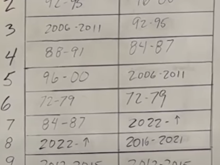 2 92-95
3 2006-2011 92-95
4 88-91 84-87
5 96-00 2006-2011
6 72-79 72-79
7 84-87 2022-↑
8 2022-↑ 2016-2021